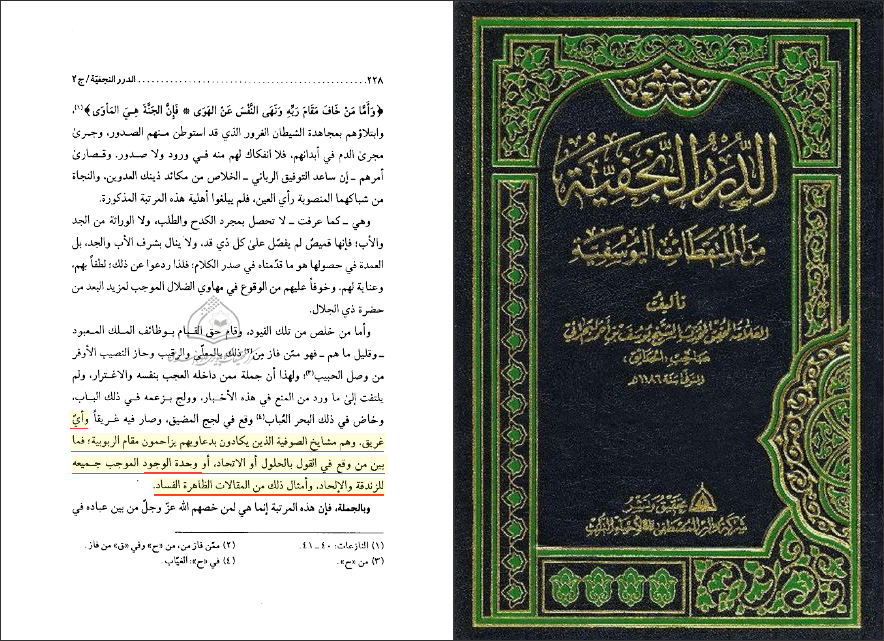 ٢٢٨ ........................................ الدرر النجفيّة / ج ٢
﴿وَأَمَّا مَنْ خَافَ مَقَامَ رَبِّهِ وَنَهَى النَّفْسَ عَنِ الهَوَى * فَإِنَّ الجَنَّةَ هِيَ المَأوَى﴾(١)،
وابتلاؤهم بمجاهدة الشيطان الغرور الذي قد استوطن منهم الصدور، وجرىٰ
مجرىٰ الدم في أبدانهم، فلا انفكاك لهم منه في ورود ولا صدور، وقصارىٰ
أمرهم ـ إن ساعد التوفيق الرباني ـ الخلاص من مكائد ذينك العدوين، والنجاة
من شباكهما المنصوبة رأي العين، فلم يبلغوا أهلية هذه المرتبة المذكورة.
وهي ـ كما عرفت ـ لا تحصل بمجرد الكدح والطلب، ولا الوراثة من الجد
والأب؛ فإنها قميصٌ لم يفصّل علىٰ كل ذي قد، ولا ينال بشرف الأب والجد، بل
العمدة في حصولها هو ما قدّمناه في صدر الكلام؛ فلذا ردعوا عن ذلك؛ لطفاً بهم،
وعناية لهم. وخوفاً عليهم من الوقوع في مهاوي الضلال الموجب لمزيد البعد من
حضرة ذي الجلال.
وأما من خلص من تلك القيود، وقام حق القيام بوظائف الملك المعبود
ـ وقليل ما هم ـ فهو ممّن فاز مِن(٢) ذلك بالمعلّىٰ والرقيب وحاز النصيب الأوفر
من وصل الحبيب(٣)؛ ولهذا أن جملة ممن داخله العجب بنفسه والاغترار، ولم
يلتفت إلىٰ ما ورد من المنع في هذه الأخبار، وولج بزعمه في ذلك الباب،
وخاض في ذلك البحر العُباب(٤) وقع في لجج المضيق، وصار فيه غريقاً وأيّ
غريق. وهم مشايخ الصوفية الذين يكادون بدعاويهم يزاحمون مقام الربوبية؛ فما
بين من وقع في القول بالحلول أو الاتحاد، أو وحدة الوجود الموجب جميعه
للزندقة والإلحاد، وأمثال ذلك من المقالات الظاهرة الفساد.
وبالجملة، فإن هذه المرتبة إنما هي لمن خصهم الله عزّ وجلّ من بين عباده في
(١) النازعات: ٤٠ ـ ٤١.
(٢) ممّن فاز من، من «ح» وفي «ق» من فاز.
(٣) من «ح».
(٤) في «ح»: العيّاب.
الدرر النجفية
من الملتقطات اليوسفية
تأليف
العلامة المحقق المحدث الشيخ يوسف بن أحمد البحراني
صاحب (الحدائق)
المتوفى سنة ١١٨٦ هـ
تحقيق ونشر
شركة دار المصطفى لإحياء التراث